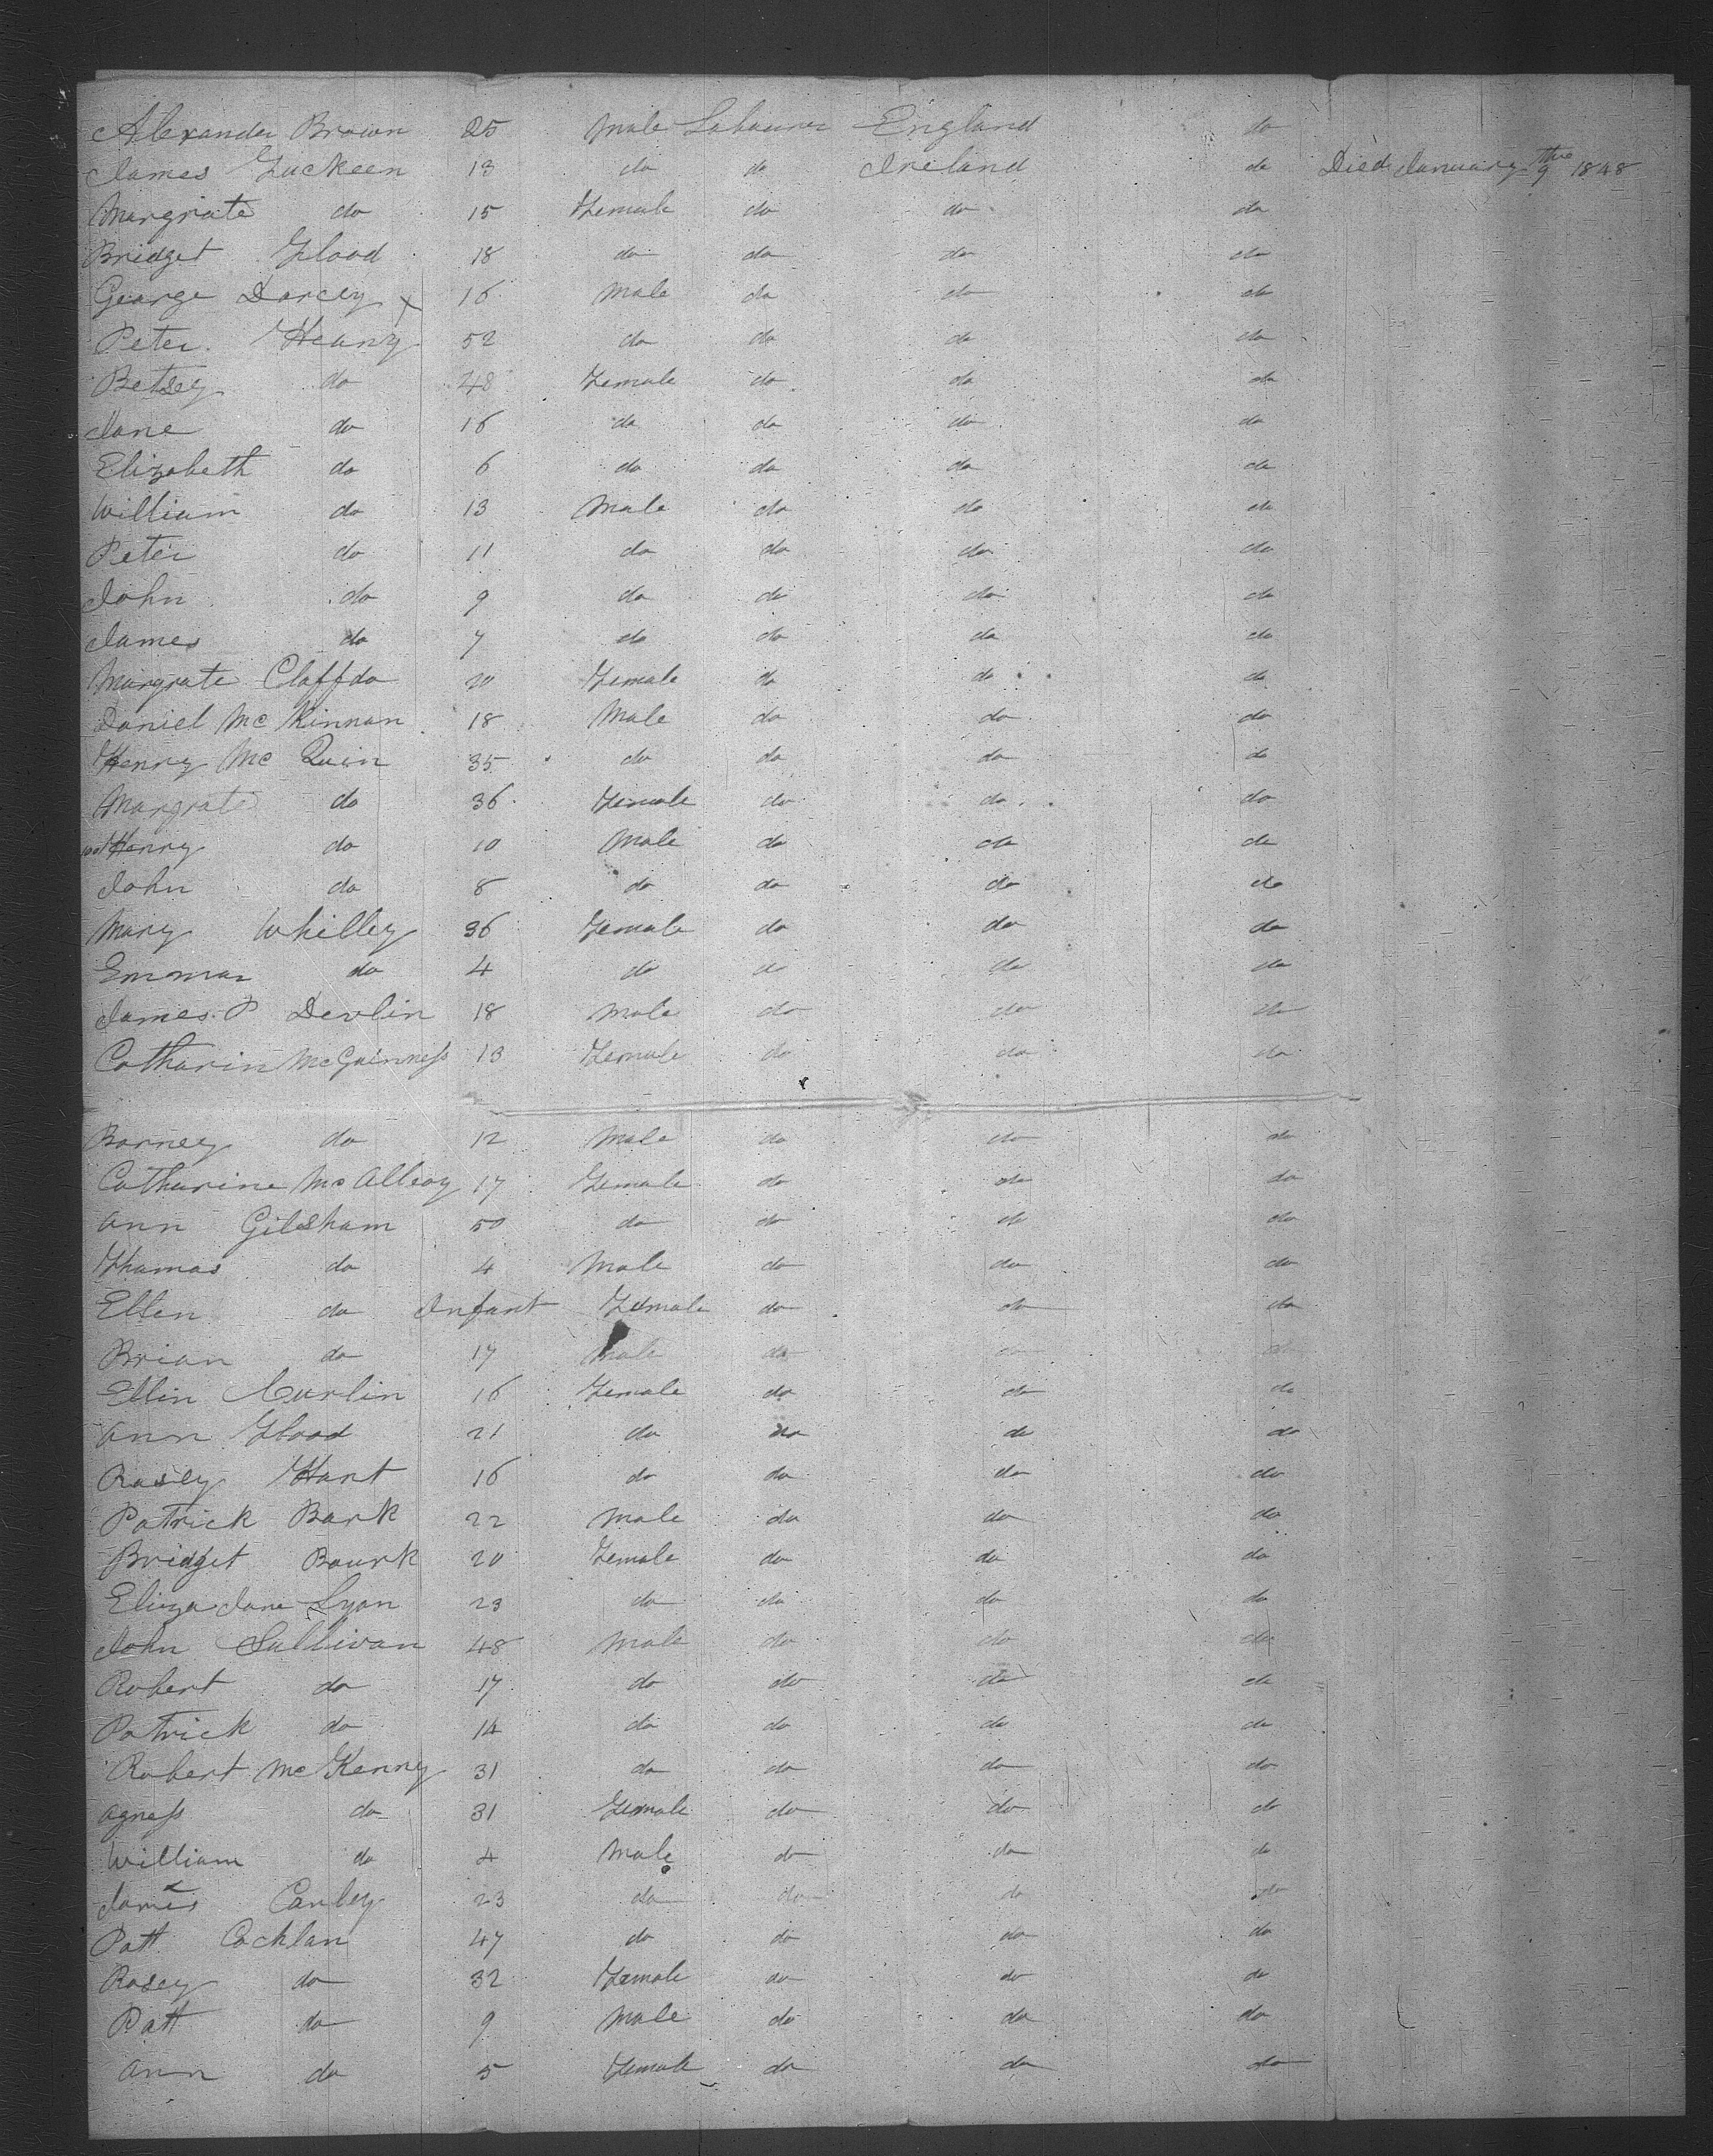 Alexander Brown 25 Male Labourer England do
James Luckeen 13 do do Ireland do Died January 9th 1848
Margrate do 15 Female do do do
Bridget Flood 18 do do do do
George Darcey x 16 Male do do do
Peter Heany 52 do do do do
Betsey do 48 Female do do do
Jane do 16 do do do do
Elizabeth do 6 do do do do
William do 13 Male do do do
Peter do 11 do do do do
John do 9 do do do do
James do 7 do do do do
Margrate Claffda 20 Female do do do
Daniel McKinnan 18 Male do do do
Henry Mc Quin 35 do do do do
Margrate do 36 Female do do do
Henry do 10 Male do do do
John do 8 do do do do
Mary Whilley 36 Female do do do
Emmar do 4 do do do do
James P Devlin 18 Male do do do
Catharin McGuinness 13 Female do do do
Barney do 12 Male do do do
Catharine McAlleay 17 Female do do do
Ann Gilsham 50 do do do do
Thomas do 4 Male do do do
Ellen do Infant Female do do do
Brian do 17 Male do do do
Ellin Curlin 16 Female do do do
Ann Flood 21 do do do do
Rosey Hart 16 do do do do
Patrick Bark 22 Male do do do
Bridget Bourk 20 Female do do do
Eliza Jane Lyan 23 do do do do
John Sullivan 48 Male do do do
Robert do 17 do do do do
Patrick do 14 do do do do
Robert McKenny 31 do do do do
Agness do 31 Female do do do
William do 4 Male do do do
James Canley 23 do do do do
Patt Cochlan 47 do do do do
Rosey do 32 Female do do do
Patt do 9 Male do do do
Ann do 5 Female do do do